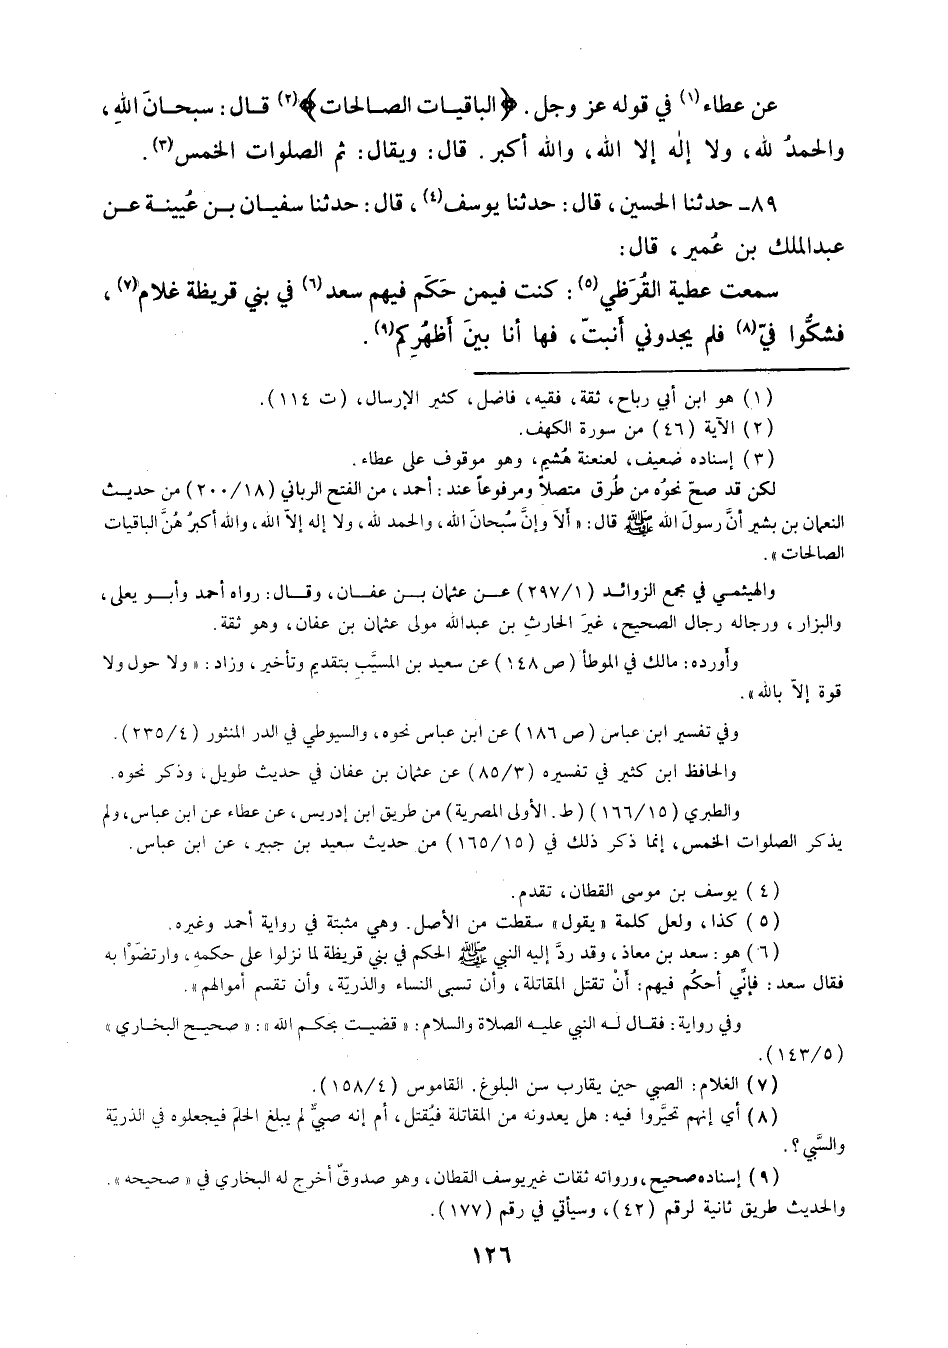 عن عطاء(١) في قوله عز وجل. ﴿الباقيات الصالحات﴾(٢) قال: سبحانَ اللهِ،
والحمدُ لله، ولا إلٰه إلا الله، والله أكبر. قال: ويقال: ثم الصلوات الخمس(٣).
٨٩ـ حدثنا الحسين، قال: حدثنا يوسف(٤)، قال: حدثنا سفيان بن عُيينة عن
عبدالملك بن عُمير، قال:
سمعت عطية القُرَظي(٥): كنت فيمن حَكَم فيهم سعد(٦) في بني قريظة غلام(٧)،
فشكُّوا فيّ(٨) فلم يجدوني أَنبتّ، فها أنا بينَ أَظهُرِكم(٩).
(١) هو ابن أبي رباح، ثقة، فقيه، فاضل، كثير الإرسال، (ت ١١٤).
(٢) الآية (٤٦) من سورة الكهف.
(٣) إسناده ضعيف، لعنعنة هُشيم، وهو موقوف على عطاء.
لكن قد صحّ نحوُه من طُرق متصلاً ومرفوعاً عند: أحمد، من الفتح الرباني (٢٠٠/١٨) من حديث
النعمان بن بشير أنَّ رسولَ الله ﷺ قال: «أَلاَ وإنَّ سُبحانَ الله، والحمد لله، ولا إله إلاّ الله، والله أكبرُ هُنَّ الباقيات
الصالحات».
والهيثمي في مجمع الزوائد (٢٩٧/١) عن عثمان بن عفان، وقال: رواه أحمد وأبو يعلى،
والبزار، ورجاله رجال الصحيح، غيرَ الحارثِ بن عبدالله مولى عثمان بن عفان، وهو ثقة.
وأورده: مالك في الموطأ (ص ١٤٨) عن سعيد بن المسيَّب بتقديم وتأخير، وزاد: «ولا حول ولا
قوة إلاّ بالله».
وفي تفسير ابن عباس (ص ١٨٦) عن ابن عباس نحوه، والسيوطي في الدر المنثور (٢٣٥/٤).
والحافظ ابن كثير في تفسيره (٨٥/٣) عن عثمان بن عفان في حديث طويل، وذكر نحوه.
والطبري (١٦٦/١٥) (ط. الأولى المصرية) من طريق ابن إدريس، عن عطاء عن ابن عباس، ولم
يذكر الصلوات الخمس، إنما ذكر ذلك في (١٦٥/١٥) من حديث سعيد بن جبير، عن ابن عباس.
(٤) يوسف بن موسى القطان، تقدم.
(٥) كذا، ولعل كلمة «يقول» سقطت من الأصل. وهي مثبتة في رواية أحمد وغيره.
(٦) هو: سعد بن معاذ، وقد ردَّ إليه النبي ﷺ الحكم في بني قريظة لما نزلوا على حكمهِ، وارتضَوْا به
فقال سعد: فإنِّي أحكُم فيهم: أنْ تقتل المقاتلة، وأن تسبى النساء والذريّة، وأن تقسم أموالهم».
وفي رواية: فقال له النبي عليه الصلاة والسلام: «قضيت بحكم الله»: «صحيح البخاري»
(١٤٣/٥).
(٧) الغلام: الصبي حين يقارب سن البلوغ. القاموس (١٥٨/٤).
(٨) أي إنهم تحيَّروا فيه: هل يعدونه من المقاتلة فيُقتل، أم إنه صبيٌّ لم يبلغ الحلم فيجعلوه في الذريّة
والسَّبي؟.
(٩) إسناده صحيح، ورواته ثقات غير يوسف القطان، وهو صدوقٌ أخرج له البخاري في «صحيحه».
والحديث طريق ثانية لرقم (٤٢)، وسيأتي في رقم (١٧٧).
١٢٦